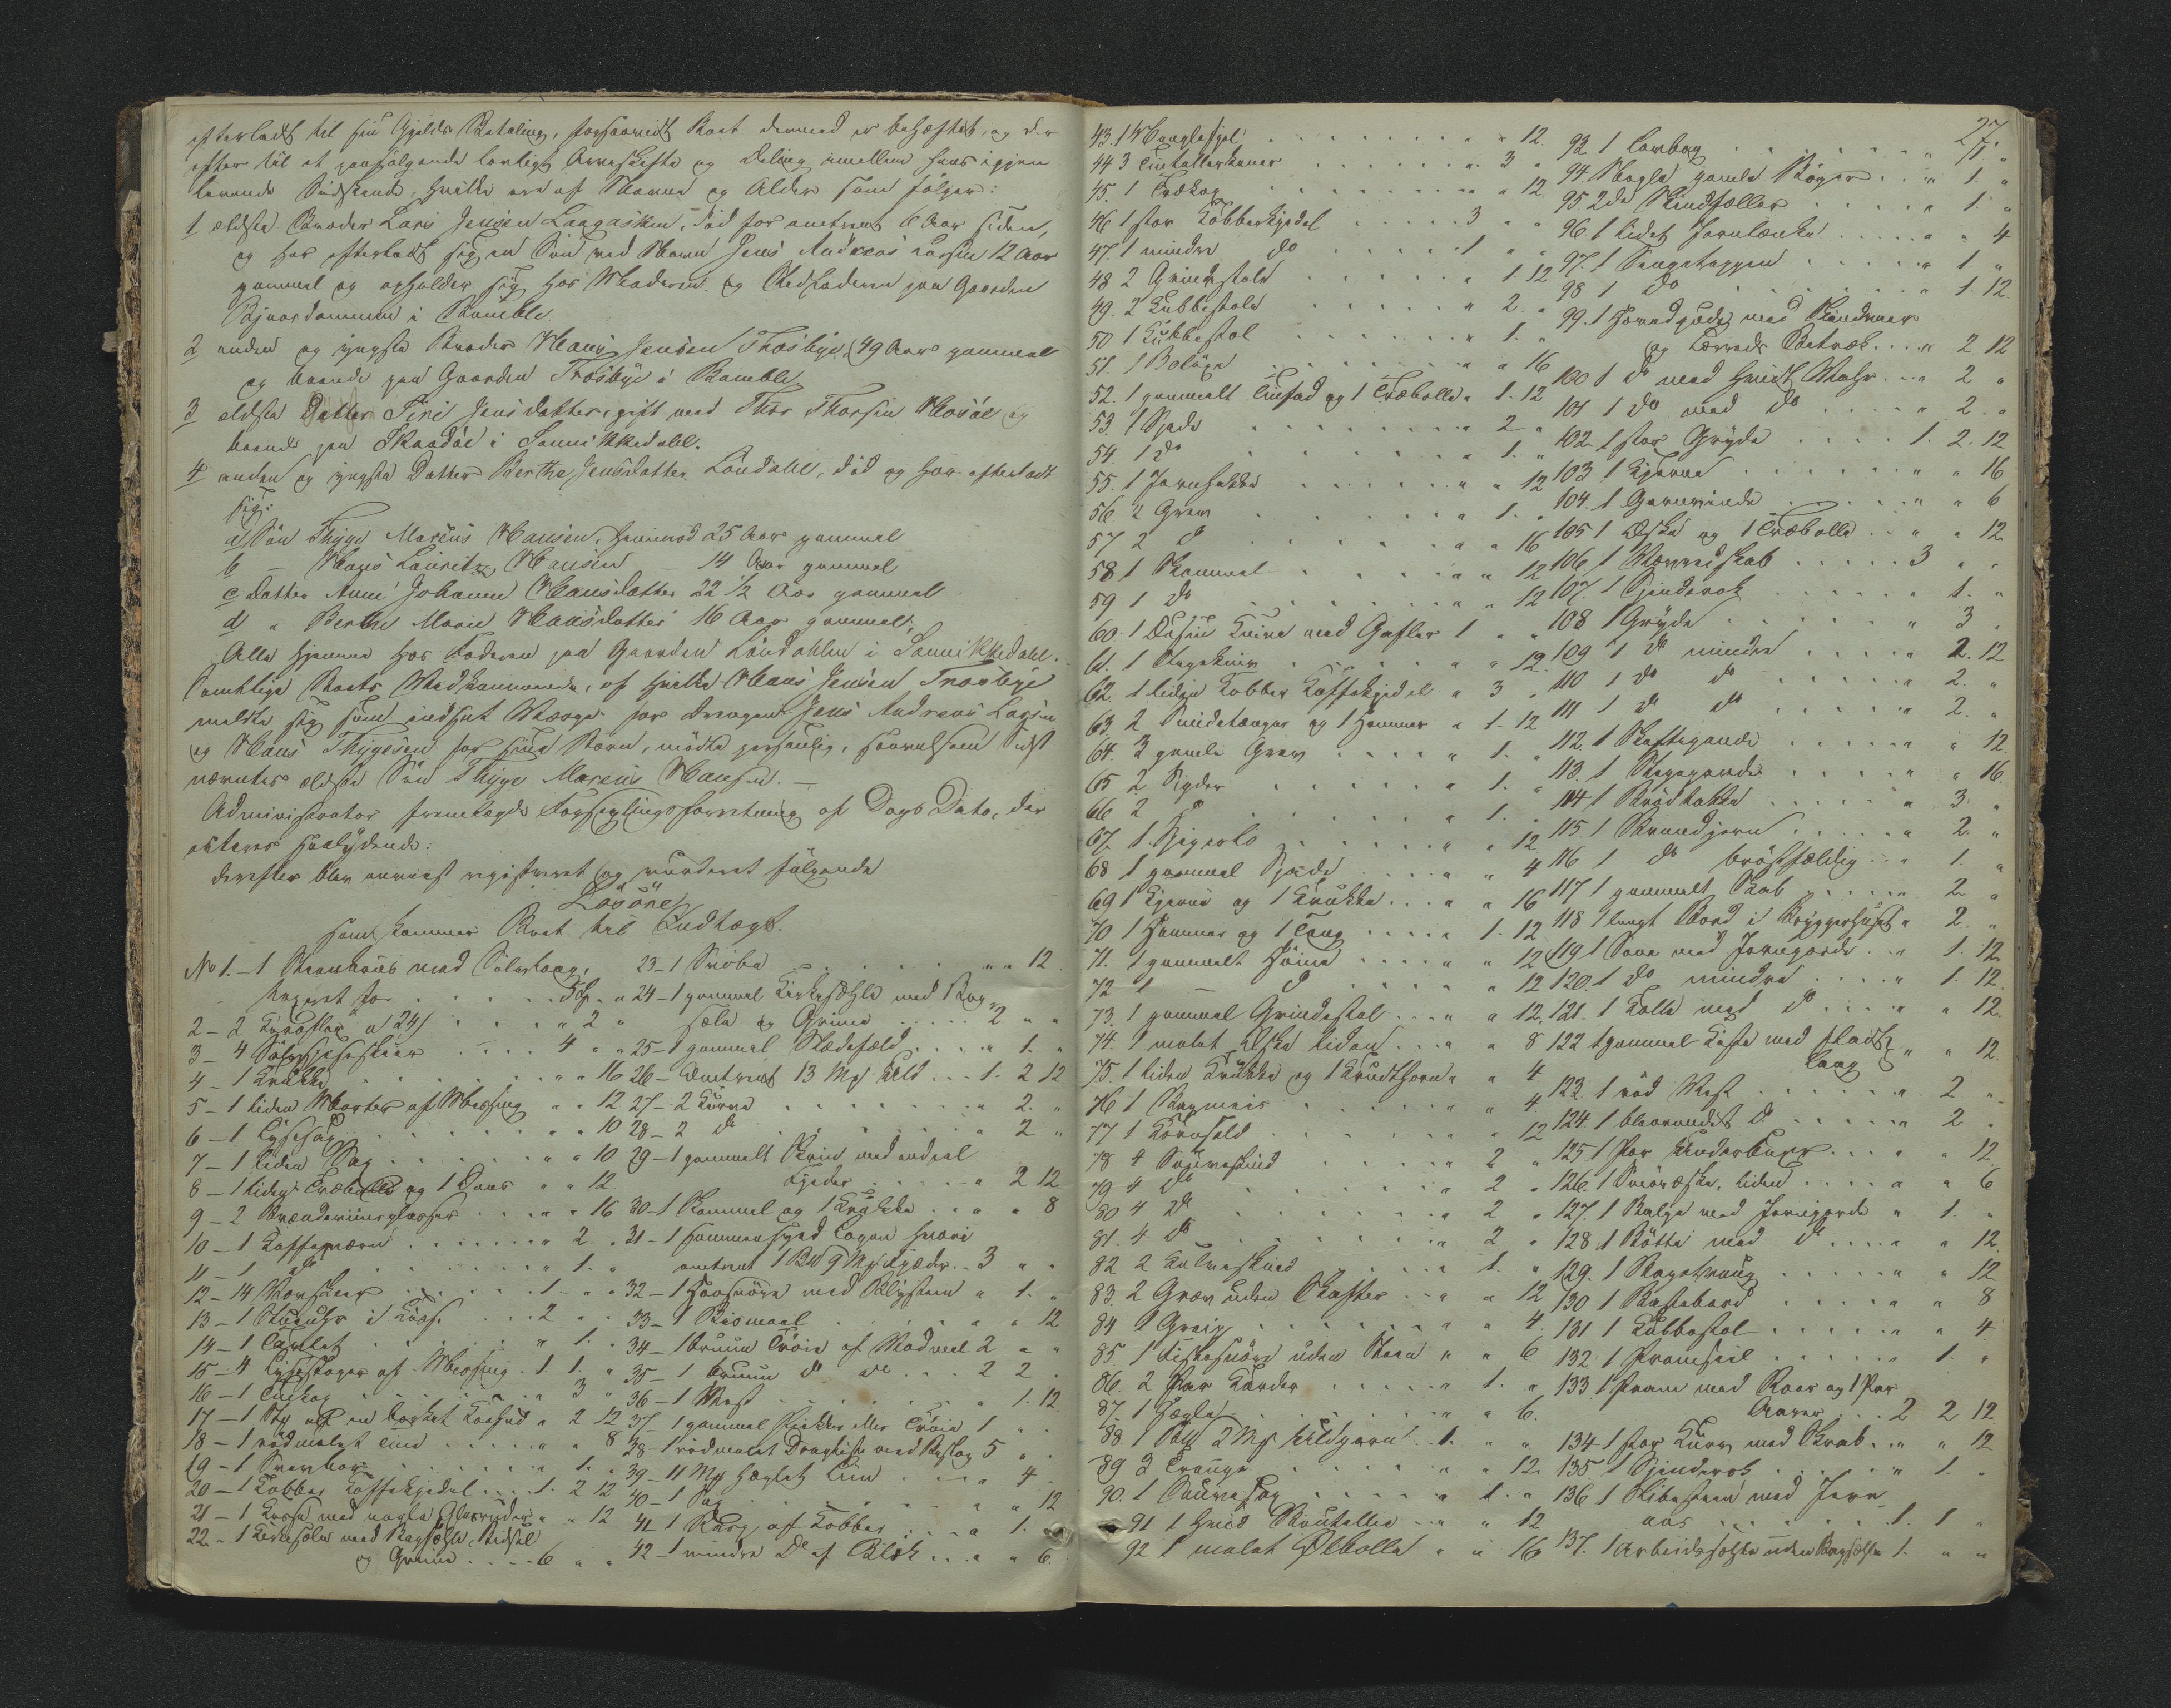 efterladt til sin Gjælds Betaling, forsaavidt Boet dermed er behæftet, og der
efter til et paafølgende lovligt Arveskifte og Deling imellem hans igjen
levende Sødskende, hvilke ere af Navne og Alder som følger:
1 ældste Broder Lars Jensen Langaasken, død for omtrent 6 Aar siden,
og har efterladt sig en Søn ved Navn Jens Andreas Larsen 12 Aar
gammel og opholder sig hos Moderen og Stedfaderen paa Gaarden
i Bamble.
2 anden og yngste Broder Hans Jensen Trosbye, 49 Aar gammel
og boende paa Gaarden Trosbye i Bamble
3 ældste Datter Siri Jensdatter, gift med Thor Thorsen og
boende paa i Sannikkedahl.
4 anden og yngste Datter Berthe Jensdatter Löndahl, død og har efterladt
sig:
a Søn Thyge Marcus Hansen, 25 Aar gammel
b — Hans Lauritz Hansen — 14 Aar gammel
c Datter Anne Johanne Hansdatter 22 1/2 Aar gammel
d " Berthe Maren Hansdatter 16 Aar gammel,
Alle hjemme hos Faderen paa Gaarden Löndahlen i Sannikkedahl.
Samtlige Boets Vedkommende, af hvilke Hans Jensen Trosbye
meldte sig som indsat Værge for Drengen Jens Andreas Larsen
og Hans Thygesen for sine Børn, mødte personlig, saavelsom sidst
nævntes ældste Søn Thyge Marcus Hansen. —
Administrator fremlagde Forseglingsforretning af Dags Dato, der
saalydende:
derefter blev anviist registreret og vurderet følgende
Løsøre
som kommer Boet til Indtægt.
No 1. – 1 med Sølvlaag,
taxeret for . . . . . 5 "
2 – 2 à 24 s . . . . " 2 "
3 – 4 Sølvspiseskeer . . . . 4 " "
4 – 1 Krukke . . . . . " " 16
5 – 1 liden Morter af Messing " " 12
6 – 1 Lysesax . . . . . " " 10
7 – 1 liden Sax . . . . . " " 10
8 – 1 liden Træbolle og 1 Daas " " 12
9 – 2 Brændeviinsglasser . . . " " 16
10 – 1 Kaffeqværn . . . . . " 2 "
11 – 1 do . . . . . " 1. "
12 – 14 . . . . . 1. " "
13 – 1 Stueuhr i Kasse . . . 2 " "
14 – 1 . . . . . " 1. "
15 – 4 Lysestager af Messing . 1 1. "
16 – 1 . . . . . " 3 "
17 – 1 " 2 12
18 – 1 rødmalet . . . . " " 8
19 – 1 . . . . . " 1. "
20 – 1 Kobber Kaffekjedel . . . 1. 2 12
21 – 1 Kasse med nogle Glasruder " " 12
22 – 1 med Bagsæle, Bidsel
og Grime . . . . 6 " "
23 – 1 . . . . . " " 12
24 – 1 gammel Kirkesæle med Bag-
sæle og Grime . . . . 2 " "
25 – 1 gammel Slædefæld . . . . " 1. "
26 – Omtrent 13 Mrk Uld . . . 1. 2 12
27 – 2 Kurve . . . . . " 2. "
28 – 2 do . . . . . " 2 "
29 – 1 gammelt Skriin med endeel
Fjeder . . . . . " 2 12
30 – 1 og 1 Krukke . . . " " 8
31 – 1 Lagen hvori
omtrent 1 Bd 9 Mrk Fjeder . . 3 " "
32 – 1 med Blysteen " 1. "
33 – 1 Bismaal . . . . " " 12
34 – 1 bruun Trøie af Vadmel 2 " "
35 – 1 bruun do do . . . 2 2 .
36 – 1 Vest . . . . . " 1. 12
37 – 1 gammel eller Trøie 1 " .
38 – 1 rødmalet Dragkiste med Beslag 5 " .
39 – 11 Mrk heglet Liin . . . " 4 –
40 – 1 Sax . . . . . " " 12
41 1 af Kobber . . . " 1. "
42 – 1 mindre do af Blik . . " " 6.
43. 1 . . . . . " " 12.
44 3 Tintallerkener . . . . . " 3 "
45. 1 . . . . . " " 12
46 1 stor Kobberkjedel . . . . 3 " "
47. 1 mindre do . . . . . 1 " "
48 2 Grindstole . . . . . " 1. 12
49. 2 Kubbestole . . . . . " 2 "
50 1 Kubbestol . . . . . " 1. "
51. 1 Boløxe . . . . . " " 16
52. 1 gammelt Tinfad og 1 Træbolle " 1. 12
53 1 Spade . . . . . " 2 "
54. 1 do . . . . . " 1. "
55. 1 Jernhakke . . . . . " " 12
56 2 Grev . . . . . " 1. "
57 2 do . . . . . " " 16
58 1 . . . . . " " 12
59 1 do . . . . . " " 12
60. 1 Dusin Knive med Gafler 1 " "
61. 1 . . . . . " " 12.
62. 1 liden Kobber Kaffekjedel " 3 "
63. 2 Smedetænger og 1 Hammer " 1. 12
64. 3 gamle Grev . . . . . " 1. "
65 2 Sigder . . . . . " 1. "
66 2 do . . . . . " 1. "
67. 1 . . . . . " " 12
68 1 gammel Spade . . . . " " 4
69 1 Kjerne og 1 Krukke . . . " " 16
70 1 Hammer og 1 Tang . . . . 1. 12
71. 1 gammelt . . . . " " 12
72 1 – do . . . . . " " 12
73. 1 gammel Grindestol . . . " " 12.
74. 1 malet Æske liden . . . " " 8
75. 1 liden Krukke og 1 Krudthorn " " 4
76 1 . . . . . " " 4
77 1 Kornsold . . . . . " " 12
78 4 Saueskind . . . . . " 2 "
79 4 do . . . . . " 2 "
80 4 do . . . . . " 2 "
81. 4 do . . . . . " 2 "
82 2 Kalveskind . . . . . " 1. "
83. 2 Grev uden Skafter . . . " " 12
84 1 Greip . . . . . " " 4.
85. 1 Fiskesnøre uden Steen " " 6
86. 2 Par Karder . . . . . " 1. "
87. 1 Hegle . . . . . " " 6.
88 1 2 Mrk Uldgarn . . 1. " "
89 3 . . . . . " " 12.
90. 1 Sauesax . . . . . " 1. "
91 1 hvid Bouteille . . . " " 12
92 1 malet Ølbolle " " 16
27.
93. 1 Lovbog . . . . . " 1. "
94 Nogle gamle Bøger . . . " 1. "
95 2de Skindfælder . . . . . " 1. "
96 1 lidet Jernlænke . . . . . " " 4
97. 1 Sengeteppen . . . . . " 1. "
98 1 do . . . . . " 1. 12.
99. 1 Hovedpude med
og Lærreds Betræk . . . " 2 12
100 1 do med hvidt . . . " 2 "
101 1 do med do . . . . " 2. "
102 1 stor Gryde . . . . 1. 2. 12
103 1 Kjerne . . . . . " " 16
104. 1 Garnvinde . . . . . " " 6
105 1 Æske og 1 Træbolle . . " " 12
106. 1 . . . . . 3 " "
107. 1 Spinderok . . . . . " 1. "
108 1 Gryde . . . . . " 3 .
109 1 do mindre . . . . . " 2. 12
110 1 do do . . . . . " 2. "
111 1 do do . . . . . " 2. "
112. 1 . . . . . " " 12
113. 1 Stegepande . . . . . " " 16
114 1 Brødtakke . . . . . " 3 "
115. 1 Brandjern . . . . . " 2 "
116 1 do brøstfældig . . . " 1. "
117 1 gammelt Skab . . . . . " 2 "
118 1 langt Bord i Bryggerhuset " 2. "
119 1 Saae med Jerngjorde . . " 1. 12.
120. 1 do mindre . . . . " 1. 12
121. 1 Kolle med do . . . . " " 12.
122 1 gammel Kiste med fladt
Laag " " 12.
123. 1 rød Vest . . . . . " 2 "
124 1 do . . . . . " 2 "
125 1 Par Underbuxer . . . " " 12
126. 1 Smøræske, liden . . . . " " 6
127. 1 Balge med Jerngjorde " 1. "
128 1 Bøtte med do . . . . " " 12.
129. 1 Bagetraug . . . . . " " 12
130 1 . . . . . " " 8
131 1 Kubbestol . . . . . " " 4
132 1 Pramseil . . . . . " 1. "
133 1 Pram med Roer og 1 Par
Aarer . . . 2 2 12
134 1 stor Kurv med Skrab . . " " 12
135 1 Spinderok . . . . . " 1. "
136 1 Slibesteen med Jern-
aas . . . . . 1. 1 "
137. 1 Arbeidssæle uden Bagsæle 1. " "